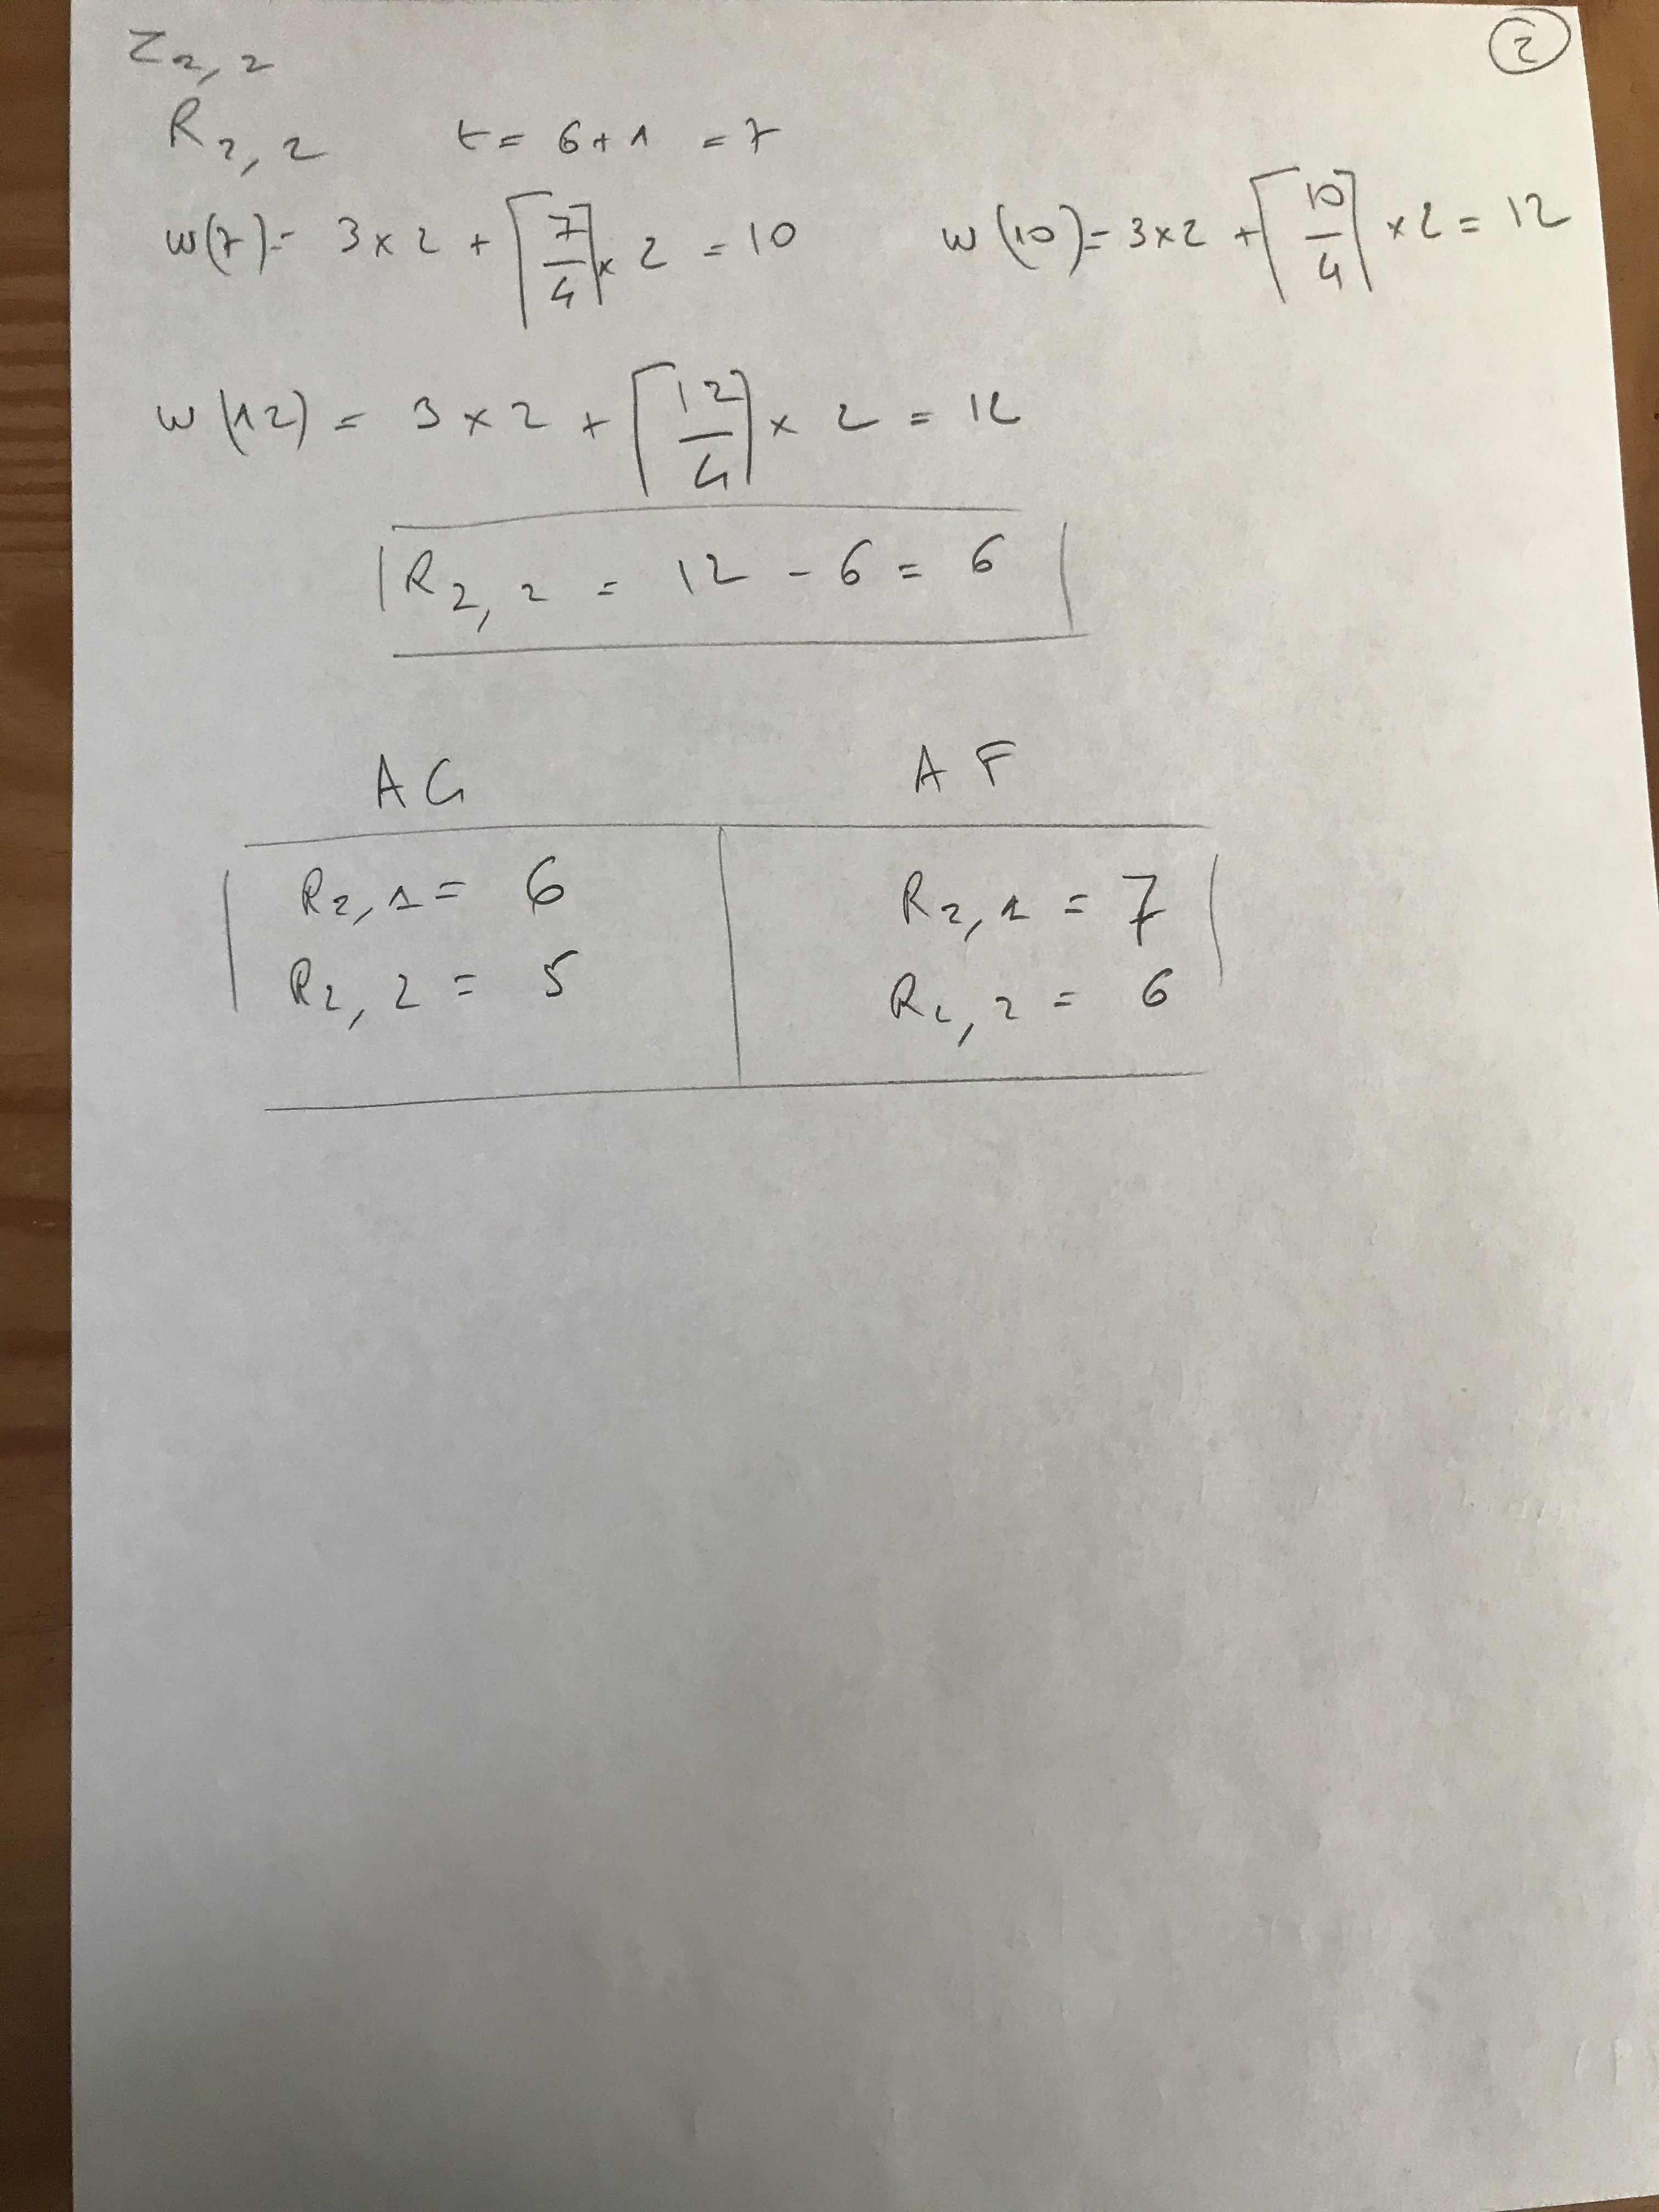 ②
Z₂,₂
R₂,₂ t = 6 + 1 = 7
w(7) = 3 × 2 + ⌈7/4⌉ × 2 = 10 w(10) = 3 × 2 + ⌈10/4⌉ × 2 = 12
w(12) = 3 × 2 + ⌈12/4⌉ × 2 = 12
R₂,₂ = 12 - 6 = 6
AG AF
R₂,₁ = 6 R₂,₁ = 7
R₂,₂ = 5 R₂,₂ = 6